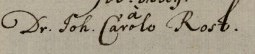 Dr. Joh. Carolo Rost.